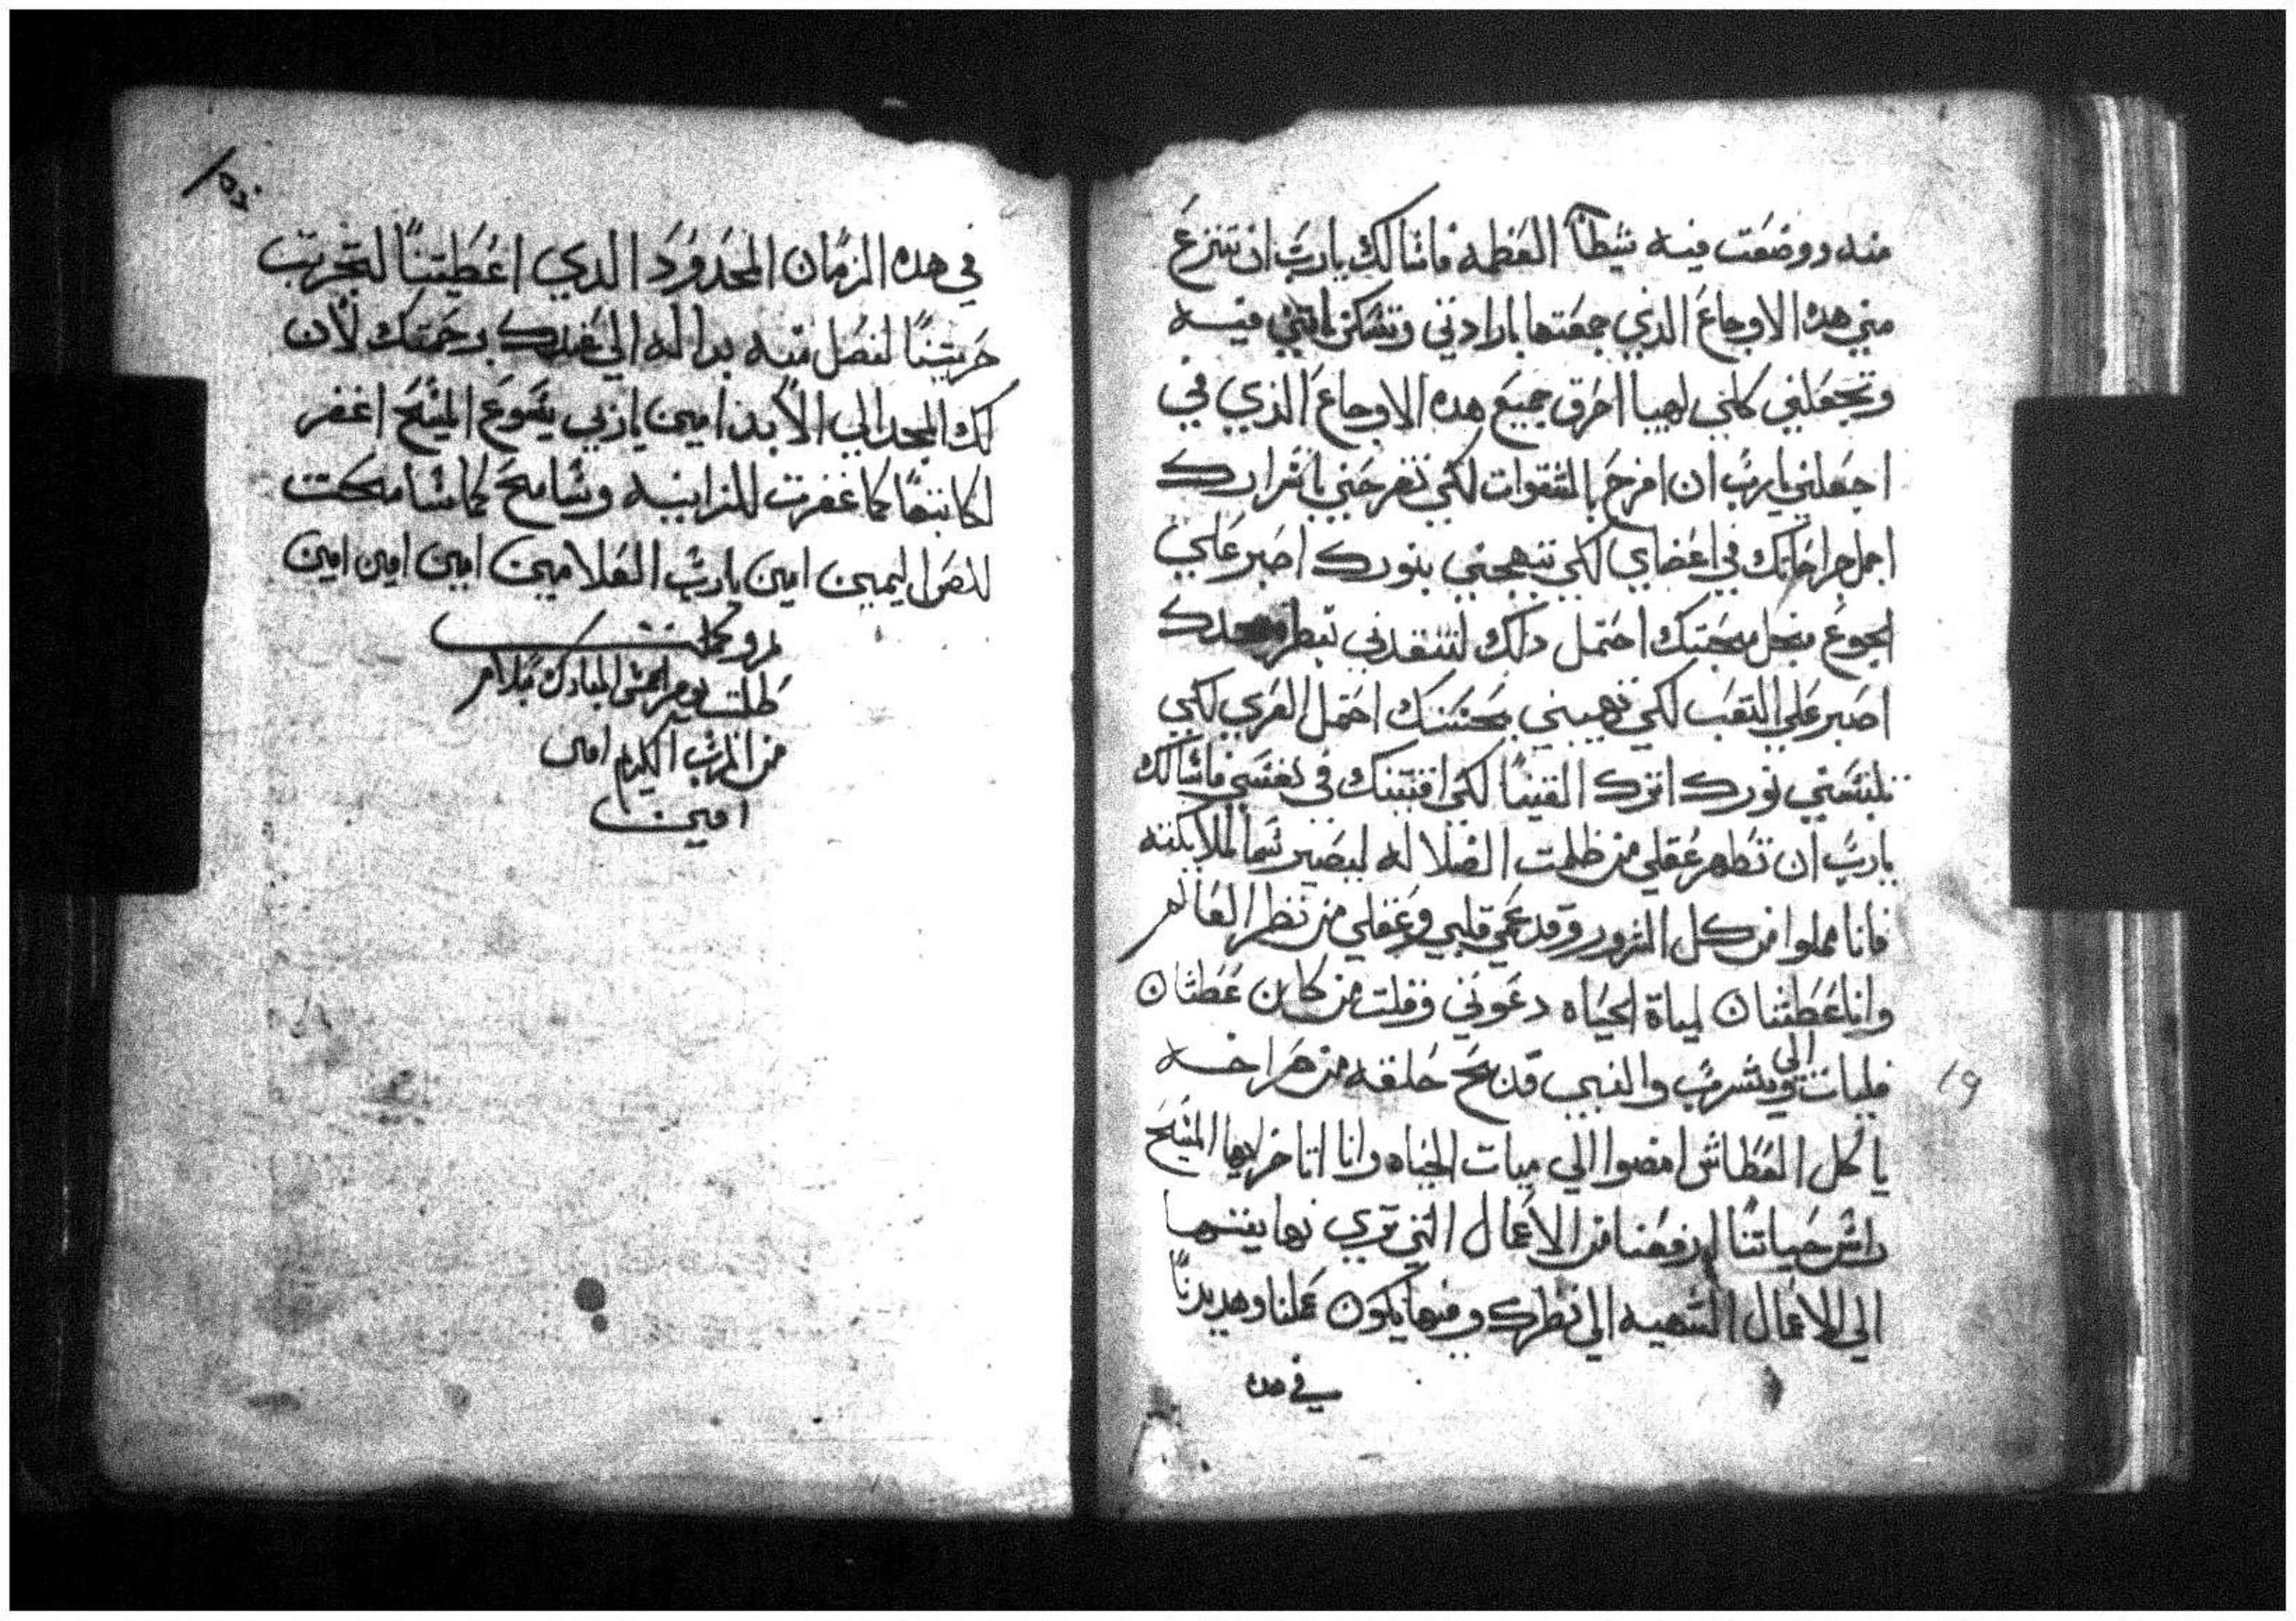 منه ووضعت فيه شيطان العظمه فاسالك يارب ان تنزع
مني هده الاوجاع الذي جمعتها بارادتي وتسكن فيه
وتجعلني كلني لهيبا احرق جميع هده الاوجاع الذي في
اجعلني يارب ان افرح بالشقوات لكي تفرحني باسرارك
اجمل جراحاتك في اعضاي لكي تبهجني بنورك اصبر علي
الجوع منجل محبتك احتمل دلك لتنقدني
اصبر علي التعب لكي احتمل العري لكي
تلبسني نورك اترك القنيا لكي اقتنيك في نفسي فاسالك
يارب ان تطهر عقلي من ظلمت الضلاله ليصير سما لملايكته
فانا مملوا من كل الشرور وقد عمي قلبي وعقلي من نظر العالم
وانا عطشان لمياة الحياه دعوتني وقلت من كان عطشان
فليات الي ويشرب والنبي قد بح حلقه من صراخه
يا كل العطاش امضوا الي ميات الحياه وانا اتاخر ايها المسيح
راس حياتنا ارفعنا من الاعمال التي تري نهايتها
الي الاعمال الشهيه الي نظرك ومنها يكون عملنا وهديدنا
في هده
19
في هده الزمان المحدود الدي اعطيتنا لتجربت
حريتنا لنصل منه بداله الي عندك برحمتك لان
لك المجد الي الابد امين ياربي يسوع المسيح اغفر
لكاتبها كما غفرت للزانيه وسامح كما سامحت
للص اليمين امين يارب العلامين امين امين امين
كملت يوم المبارك بسلام
من الرب الكريم امين
امين